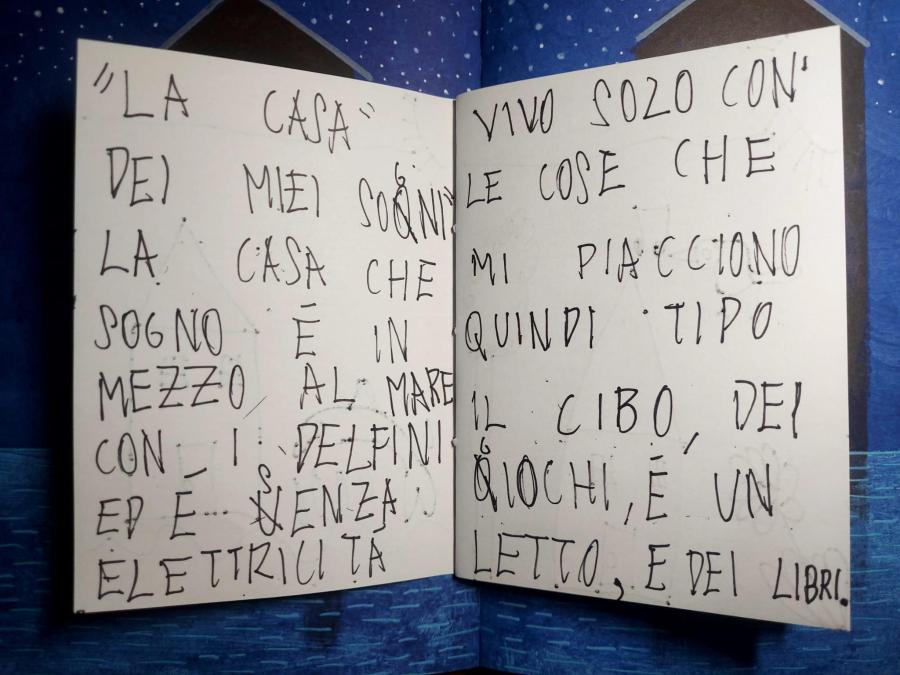 "LA CASA"
DEI MIEI SOGNI"
LA CASA CHE
SOGNO É IN
MEZZO AL MARE
CON I DELFINI
ED É SENZA
ELETTRICITÀ
VIVO SOLO CON
LE COSE CHE
MI PIACCIONO
QUINDI TIPO
IL CIBO, DEI
GIOCHI, É UN
LETTO, E DEI LIBRI.